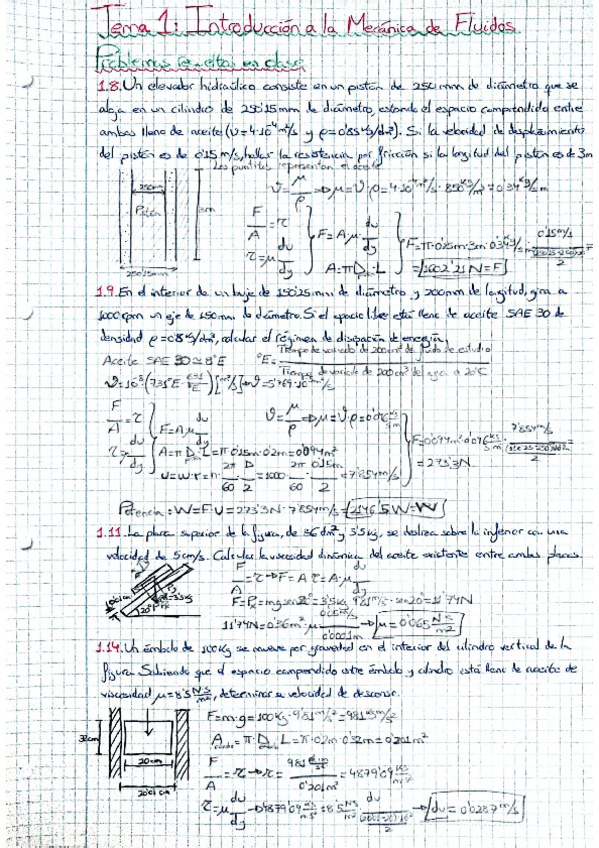 Tema 1: Introducción a la Mecánica de Fluidos
Problemas resueltos en clase
1.8. Un elevador hidraúlico consiste en un pistón de 250 mm de diámetro que se
aloja en un cilindro de 250'15 mm de diámetro, estando el espacio comprendido entre
ambos lleno de aceite (ν=4·10⁻⁴ m²/s y ρ=0'85 kg/dm³). Si la velocidad de desplazamiento
del pistón es de 0'15 m/s, hallar la resistencia por fricción si la longitud del pistón es de 3m
Los puntitos representan el aceite
250mm
Pistón
3m
250'15mm
ν = μ/ρ → μ = ν·ρ = 4·10⁻⁴ m²/s · 850 kg/m³ = 0'34 kg/s·m
F/A = τ
τ = μ du/dy
F = A·μ· du/dy
A = π·D·L
F = π·0'25m·3m·0'34 kg/s·m · 0'15 m/s
= 1602'21 N = F
1.9. En el interior de un buje de 150'15 mm de diámetro, y 200 mm de longitud, gira a
1000 rpm un eje de 150 mm de diámetro. Si el espacio libre está lleno de aceite SAE 30 de
densidad ρ=0'8 kg/dm³, calcular el régimen de disipación de energía.
Aceite SAE 30 = 8°E
°E = Tiempo de vaciado de 200cm³ de fluido de estudio / Tiempo de vaciado de 200cm³ del agua a 20°C
F/A = τ
τ = μ du/dy
F = A·μ du/dy
A = π·D·L = π·0'15m·0'2m = 0'094m²
u = w·r = n· 2π/60 · D/2 = 1000 · 2π/60 · 0'15m/2 = 7'854 m/s
ν = μ/ρ → μ = ν·ρ = 0'046 kg/s·m
= 273'3 N
Potencia = W = F·u = 273'3N · 7'854 m/s = 2146'5 W = W
1.11. La placa superior de la figura, de 36 dm² y 3'5 kg, se desliza sobre la inferior con una
velocidad de 5 cm/s. Calcular la viscosidad dinámica del aceite existente entre ambas placas.
20°
F/A = τ → F = A·τ = A·μ· du/dy
F = Pₓ = mg sen20° = 3'5kg · 9'81 m/s² · sen20° = 11'74N
11'74N = 0'36m² · μ · 0'05m/s / 0'0001m → μ = 0'065 N·s/m²
1.14. Un émbolo de 100 kg se mueve por gravedad en el interior del cilindro vertical de la
figura. Sabiendo que el espacio comprendido entre émbolo y cilindro está lleno de aceite de
viscosidad μ=8'5 N·s/m², determinar su velocidad de descenso.
32cm
20cm
20'01cm
F = m·g = 100kg · 9'81 m/s² = 981 kg·m/s²
A = π·D·L = π·0'2m·0'32m = 0'201m²
F/A = τ → τ = 981 kg·m/s² / 0'201m² = 4879'09 kg/m·s²
τ = μ du/dy → 4879'09 kg/m·s² = 8'5 N·s/m² · du → du = 0'0287 m/s